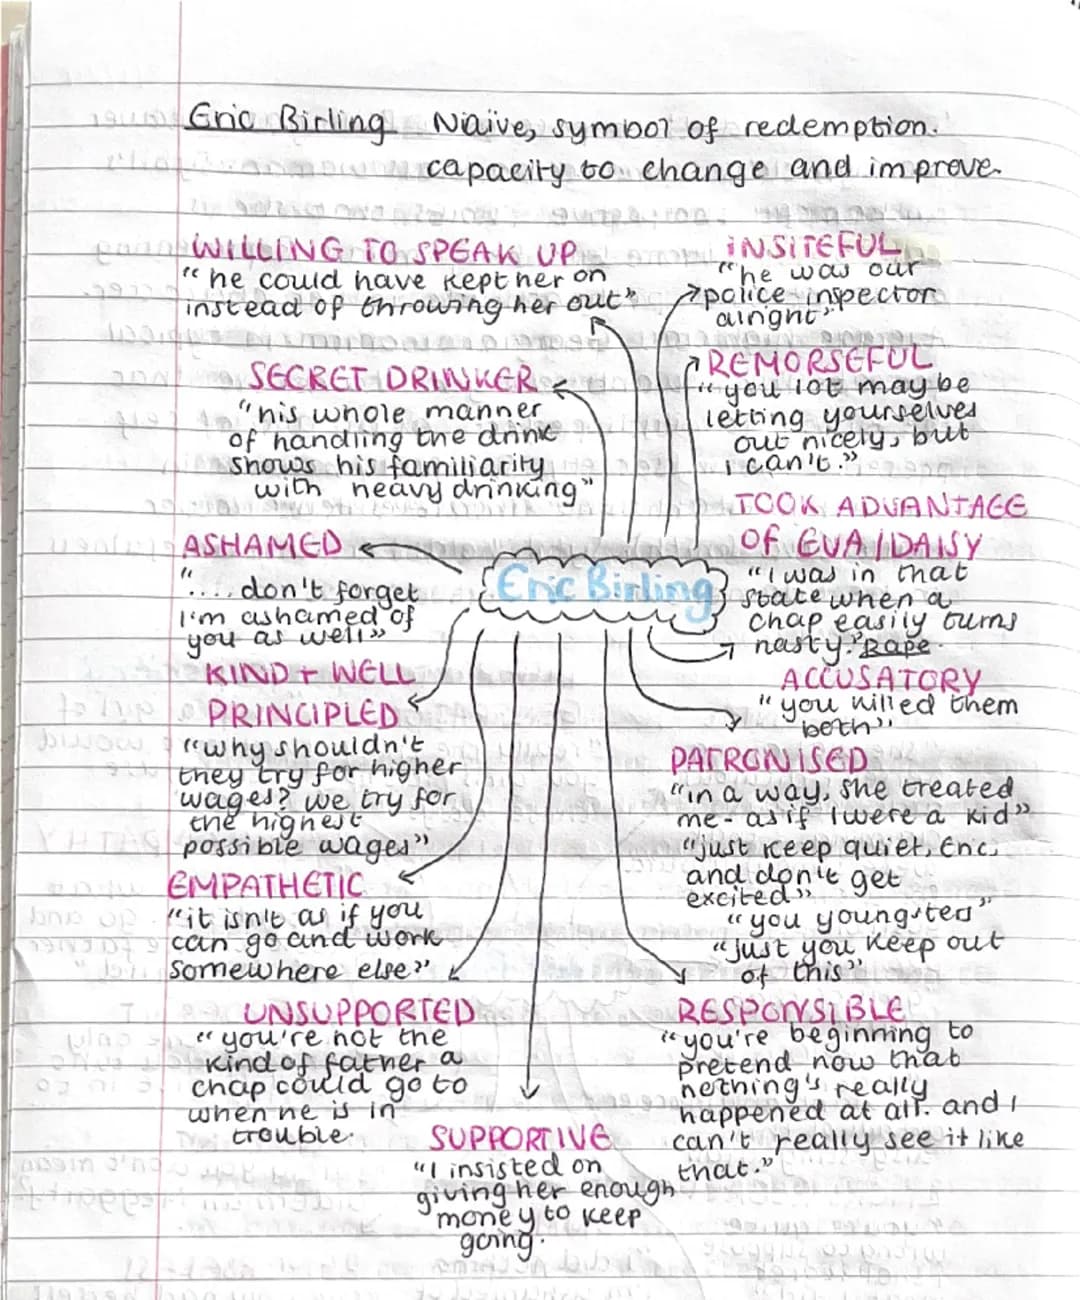 Eric Birling Naive, symbol of redemption.
capacity to change and improve.
WILLING TO SPEAK UP
"he could have kept her on
instead of throwing her out"
INSITEFUL
"he was our
police inspector
alright"
SECRET DRINKER
"his whole manner
of handling the drink
shows his familiarity
with heavy drinking"
REMORSEFUL
"you lot may be
letting yourselves
out nicely, but
i can't."
TOOK ADVANTAGE
OF EVA/DAISY
"I was in that
state when a
chap easily turns
nasty." Rape.
ASHAMED
".... don't forget
I'm ashamed of
you as well"
Eric Birling
KIND + WELL
PRINCIPLED
"why shouldn't
they try for higher
wages? we try for
the highest
possible wages"
ACCUSATORY
"you killed them
both"
PATRONISED
"in a way, she treated
me - as if I were a kid"
"just keep quiet, Eric,
and don't get
excited"
"you youngsters"
"just you keep out
of this"
EMPATHETIC
"it isn't as if you
can go and work
somewhere else"
UNSUPPORTED
"you're not the
kind of father a
chap could go to
when he is in
trouble.
RESPONSIBLE
"you're beginning to
pretend now that
nothing's really
happened at all. and I
can't really see it like
that."
SUPPORTIVE
"I insisted on
giving her enough
money to keep
going.